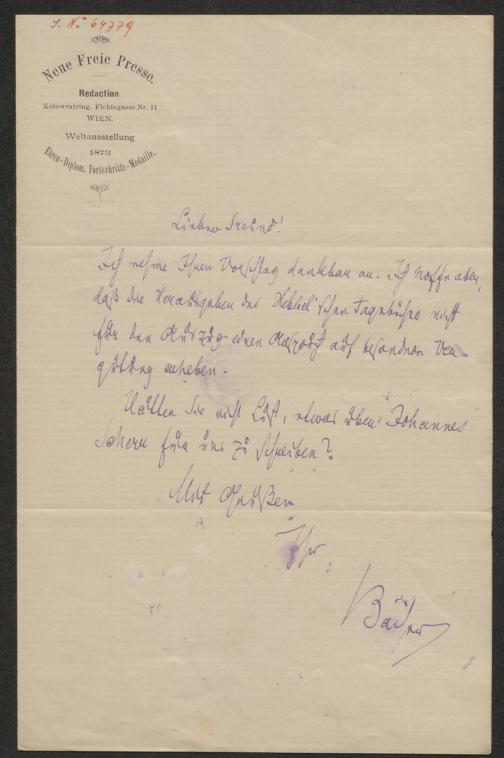 I. N. 64779
Neue Freie Presse.
Redaction
Kolowratring, Fichtegasse Nr. 11
WIEN.
Weltausstellung
1873
Ehren-Diplom. Fortschritts-Medaille.
Lieber Freund!
Ich nehme Ihren Vorschlag dankbar an. Ich hoffe aber,
daß die Herausgeber der Hebbel'schen Tagebücher nicht
für den Auszug einen Anspruch auf besondere Ver-
gütung erheben.
Hätten Sie nicht Lust, etwas über Johannes
Scherr für uns zu schreiben?
Mit Grüßen
Ihr
Bacher